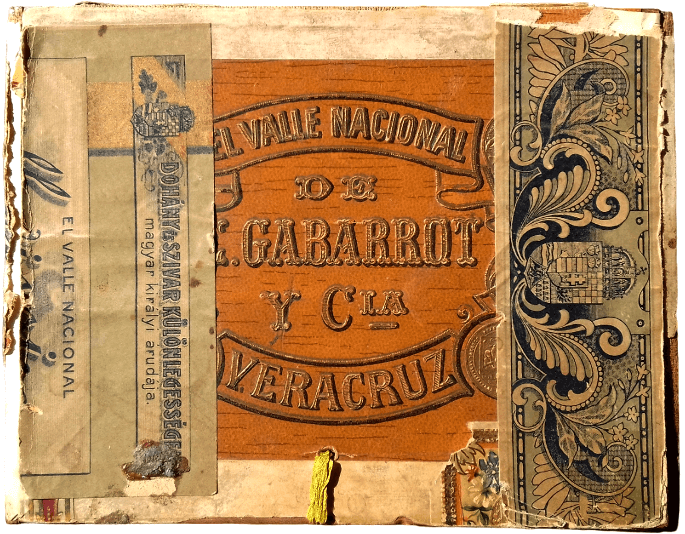 EL VALLE NACIONAL
DE
E. GABARROT
Y CIA
VERACRUZ
EL VALLE NACIONAL
DOHÁNY & SZIVAR KÜLÖNLEGESSÉGE
magyar királyi árudája.